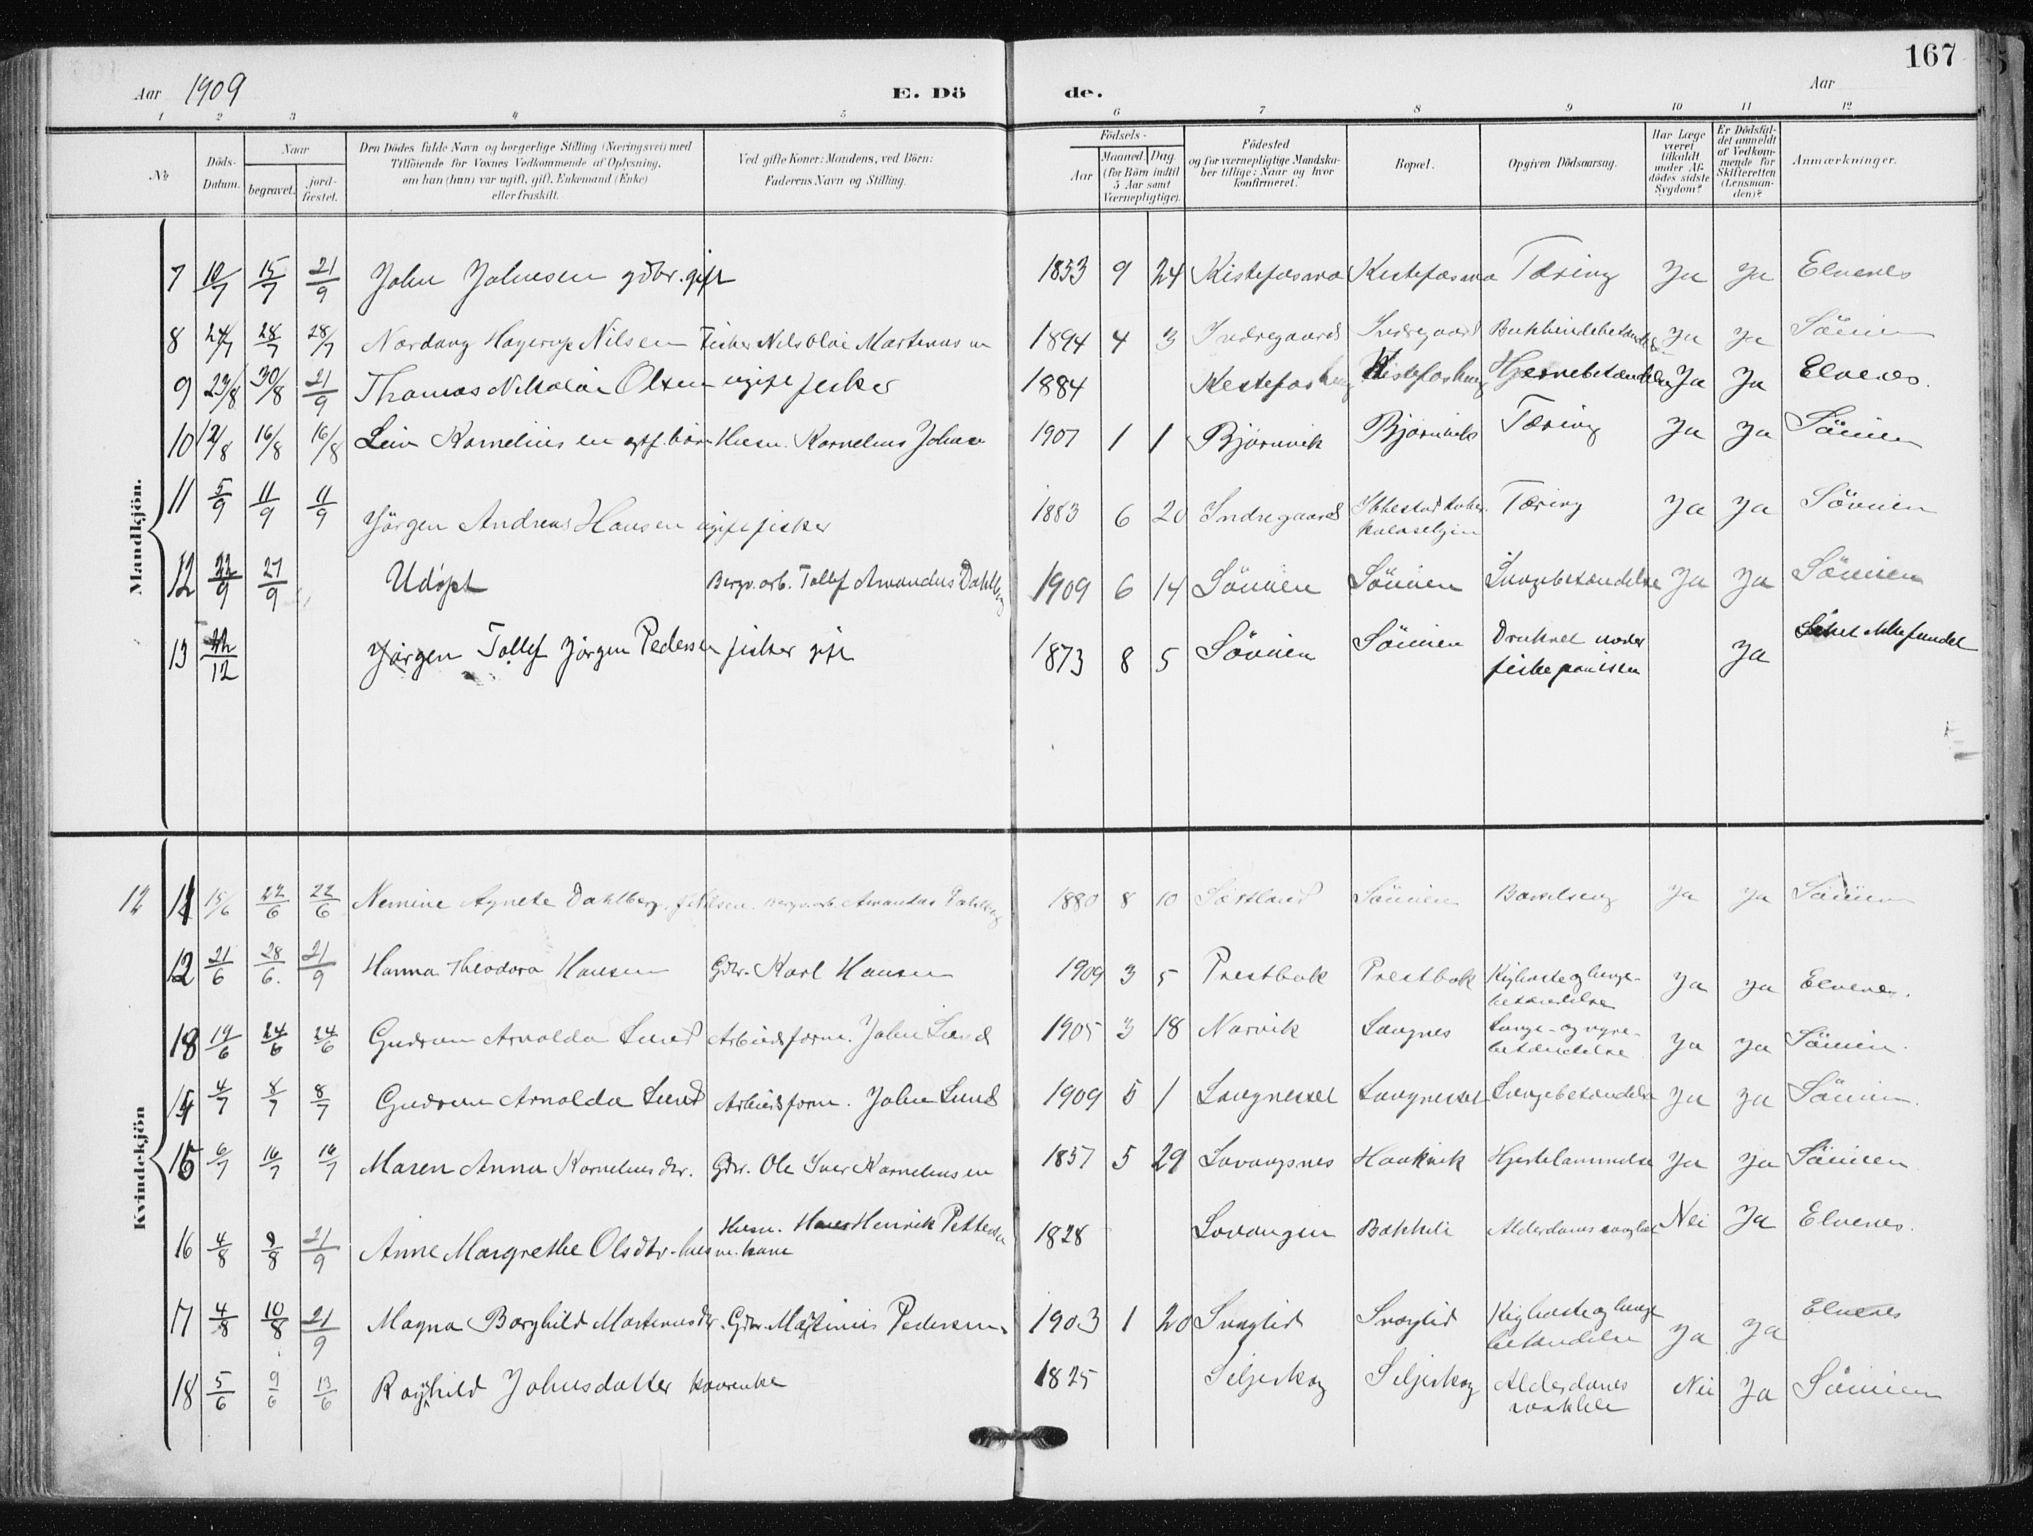 167
Aar 1909 E. Dö de. Aar
1 2 3 4 5 6 7 8 9 10 11 12
No
Döds-Datum.
Naar
begravet. jord-fæstet.
Den Dödes fulde Navn og borgerlige Stilling (Næringsvei) med
Tilföiende for Voxnes Vedkommende af Oplysning,
om han (hun) var ugift, gift, Enkemand (Enke)
eller fraskilt.
Ved gifte Koner: Mandens, ved Börn:
Faderens Navn og Stilling.
Födsels-
Aar
Maaned. Dag
(for Börn indtil
5 Aar samt
Værnepligtige).
Födested
og for værnepligtige Mandska-
ber tillige: Naar og hvor
konfirmeret.
Bopæl.
Opgiven Dödsaarsag.
Har Læge
været
tilkaldt
under Af-
dödes sidste
Sygdom?
Er Dödsfal-
det anmeldt
af Vedkom-
mende for
Skifteretten
(Lensman-
den)?
Anmærkninger.
Mandkjön.
7 10/7 15/7 21/9 John Johnsen gdbr. gift 1853 9 24 Kistefosmo Kistefosmo Tæring Ja Ja Elvenes
8 24/7 28/7 28/7 Nordang Hagerup Nilsen Fisker Nils Olai Martinussen 1894 4 3 Indregaard Indregaard Ja Ja Sövnien
9 23/8 30/8 21/9 Thomas Nikolai Olsen ugift fisker 1884 Kistefoshaug Kistefoshaug Hjernebetændelse Ja Ja Elvenes.
10 12/8 16/8 16/8 Kornelius Johns 1907 1 1 Bjørnvik Bjørnvik Tæring Ja Ja Sövnien
11 5/9 11/9 11/9 Jörgen Andreas Hansen ugift fisker 1883 6 20 Indregaard Tæring Ja Ja Sövnien
12 22/9 27/9 Udöpt Bergv.arb. Tollef Amandus Dahlberg 1909 6 14 Sövnien Sövnien Lungebetændelse Ja Ja Sövnien
13 12 Jörgen Tollef Jörgen Pedersen fisker gift 1873 8 5 Sövnien Sövnien Druknet under Ja Liket ikke fundet
Kvindekjön
12 11 15/6 22/6 22/6 Nemine Agnete Dahlberg f. Nilsen. Bergv.arb. Amandus Dahlberg 1880 8 10 Sövnien Barselseng Ja Ja Sövnien
12 21/6 28/6. 21/9 Hanna Theodora Hansen Gdbr. Karl Hansen 1909 3 5 Prestbak Prestbak Kighoste og lunge-
betændelse Ja Ja Elvenes.
18 19/6 24/6 24/6 Gudrun Arnolda Lund Arbeidsform. John Lund 1905 3 18 Narvik Langnes Lunge- og nyre-
betændelse Ja Ja Sövnien.
15 4/7 8/7 8/7 Gudrun Arnolda Lund Arbeidsform. John Lund 1909 5 1 Langneset Langneset Lungebetændelse Ja Ja Sövnien.
15 6/7 16/7 16/7 Maren Anna Korneliusdtr. Gdbr. Ole Iver Korneliussen 1857 5 29 Lavangsnes Haakvik Hjertelammelse Ja Ja Sövnien
16 4/8 9/8 21/9 Anne Margrethe Olsdtr. husm. kone Husm. Hans Henrik Pettersen 1828 Lavangen Bakkeli Alderdomssvaghet Nei Ja Elvenes.
17 4/8 10/8 21/9 Magna Borghild Martinusdtr. Gdbr. Martinus Pedersen 1903 1 20 Kighoste og lunge
betændelse Ja Ja Elvenes
18 5/6 9/6 13/6 Raghild Johnsdatter 1825 Seljeskog Seljeskog Alderdoms
Nei Ja Sövnien